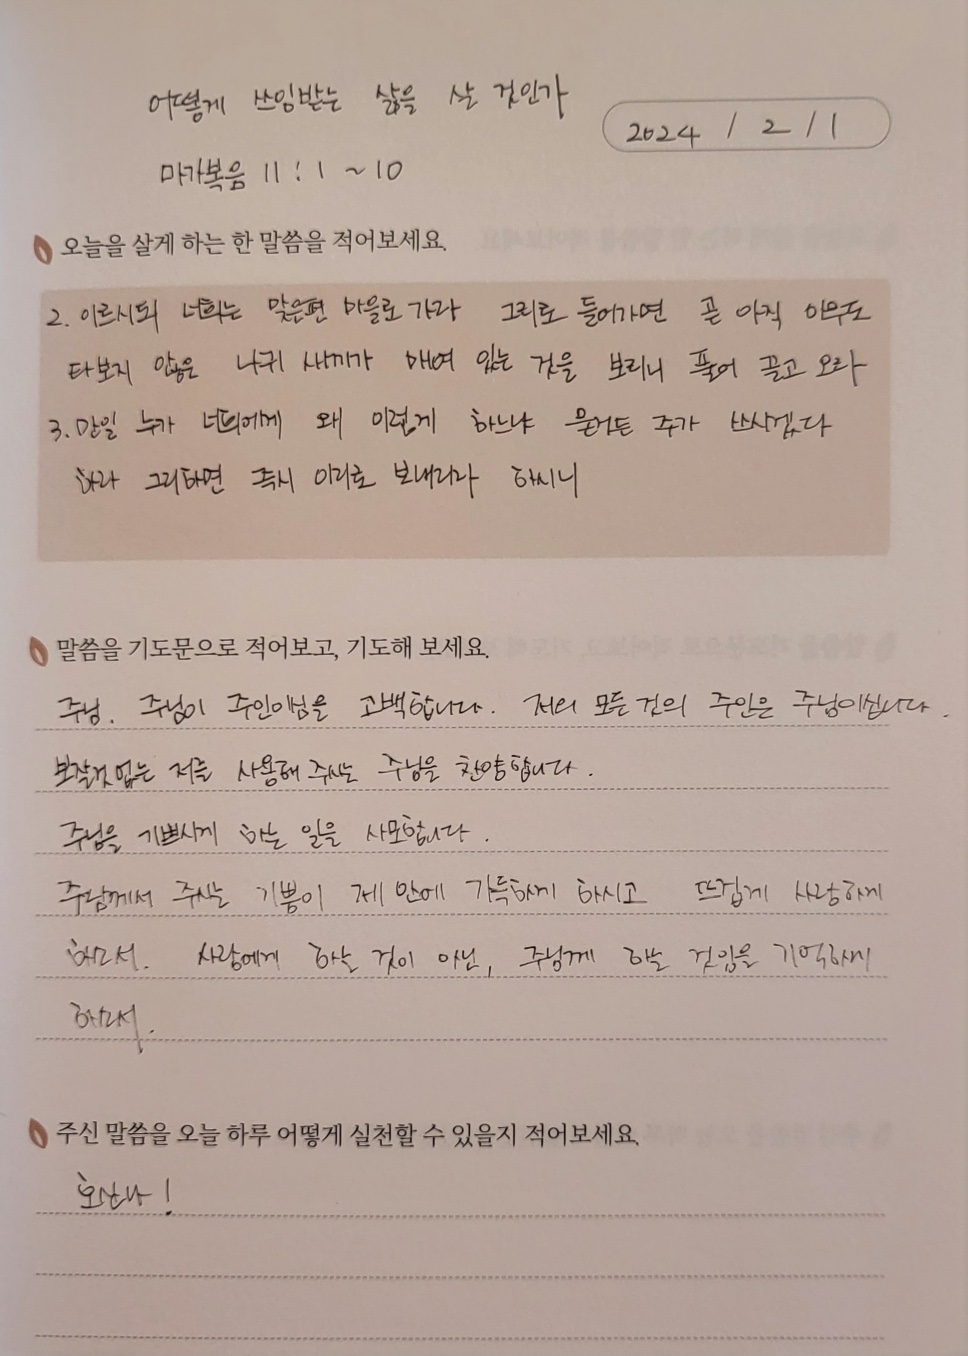 어떻게 쓰임받는 삶을 살 것인가
2024 / 2 / 1
마가복음 11 : 1 ~ 10
오늘을 살게 하는 한 말씀을 적어보세요.
2. 이르시되 너희는 맞은편 마을로 가라 그리로 들어가면 곧 아직 아무도
타보지 않은 나귀 새끼가 매여 있는 것을 보리니 풀어 끌고 오라
3. 만일 누가 너희에게 왜 이렇게 하느냐 묻거든 주가 쓰시겠다
하라 그리하면 즉시 이리로 보내리라 하시니
말씀을 기도문으로 적어보고, 기도해 보세요.
주님. 주님이 주인이심을 고백합니다. 저의 모든 것의 주인은 주님이십니다.
보잘것 없는 저를 사용해 주시는 주님을 찬양합니다.
주님을 기쁘시게 하는 일을 사모합니다.
주님께서 주시는 기쁨이 제 안에 가득하게 하시고 뜨겁게 사랑하게
하소서. 사람에게 하는 것이 아닌, 주님께 하는 것임을 기억하게
하소서.
주신 말씀을 오늘 하루 어떻게 실천할 수 있을지 적어보세요.
호산나!